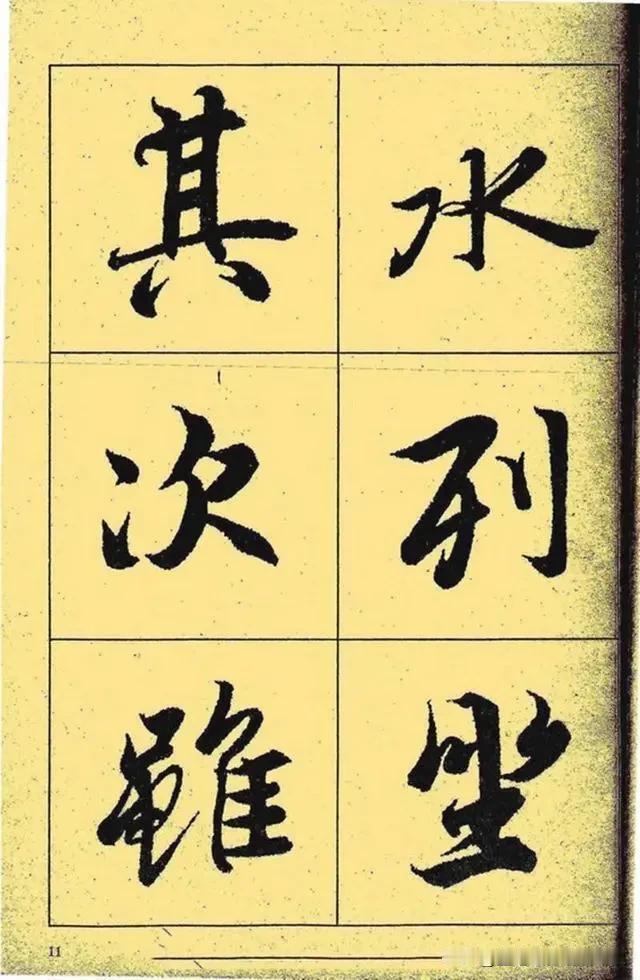 水列坐
其次雖
11